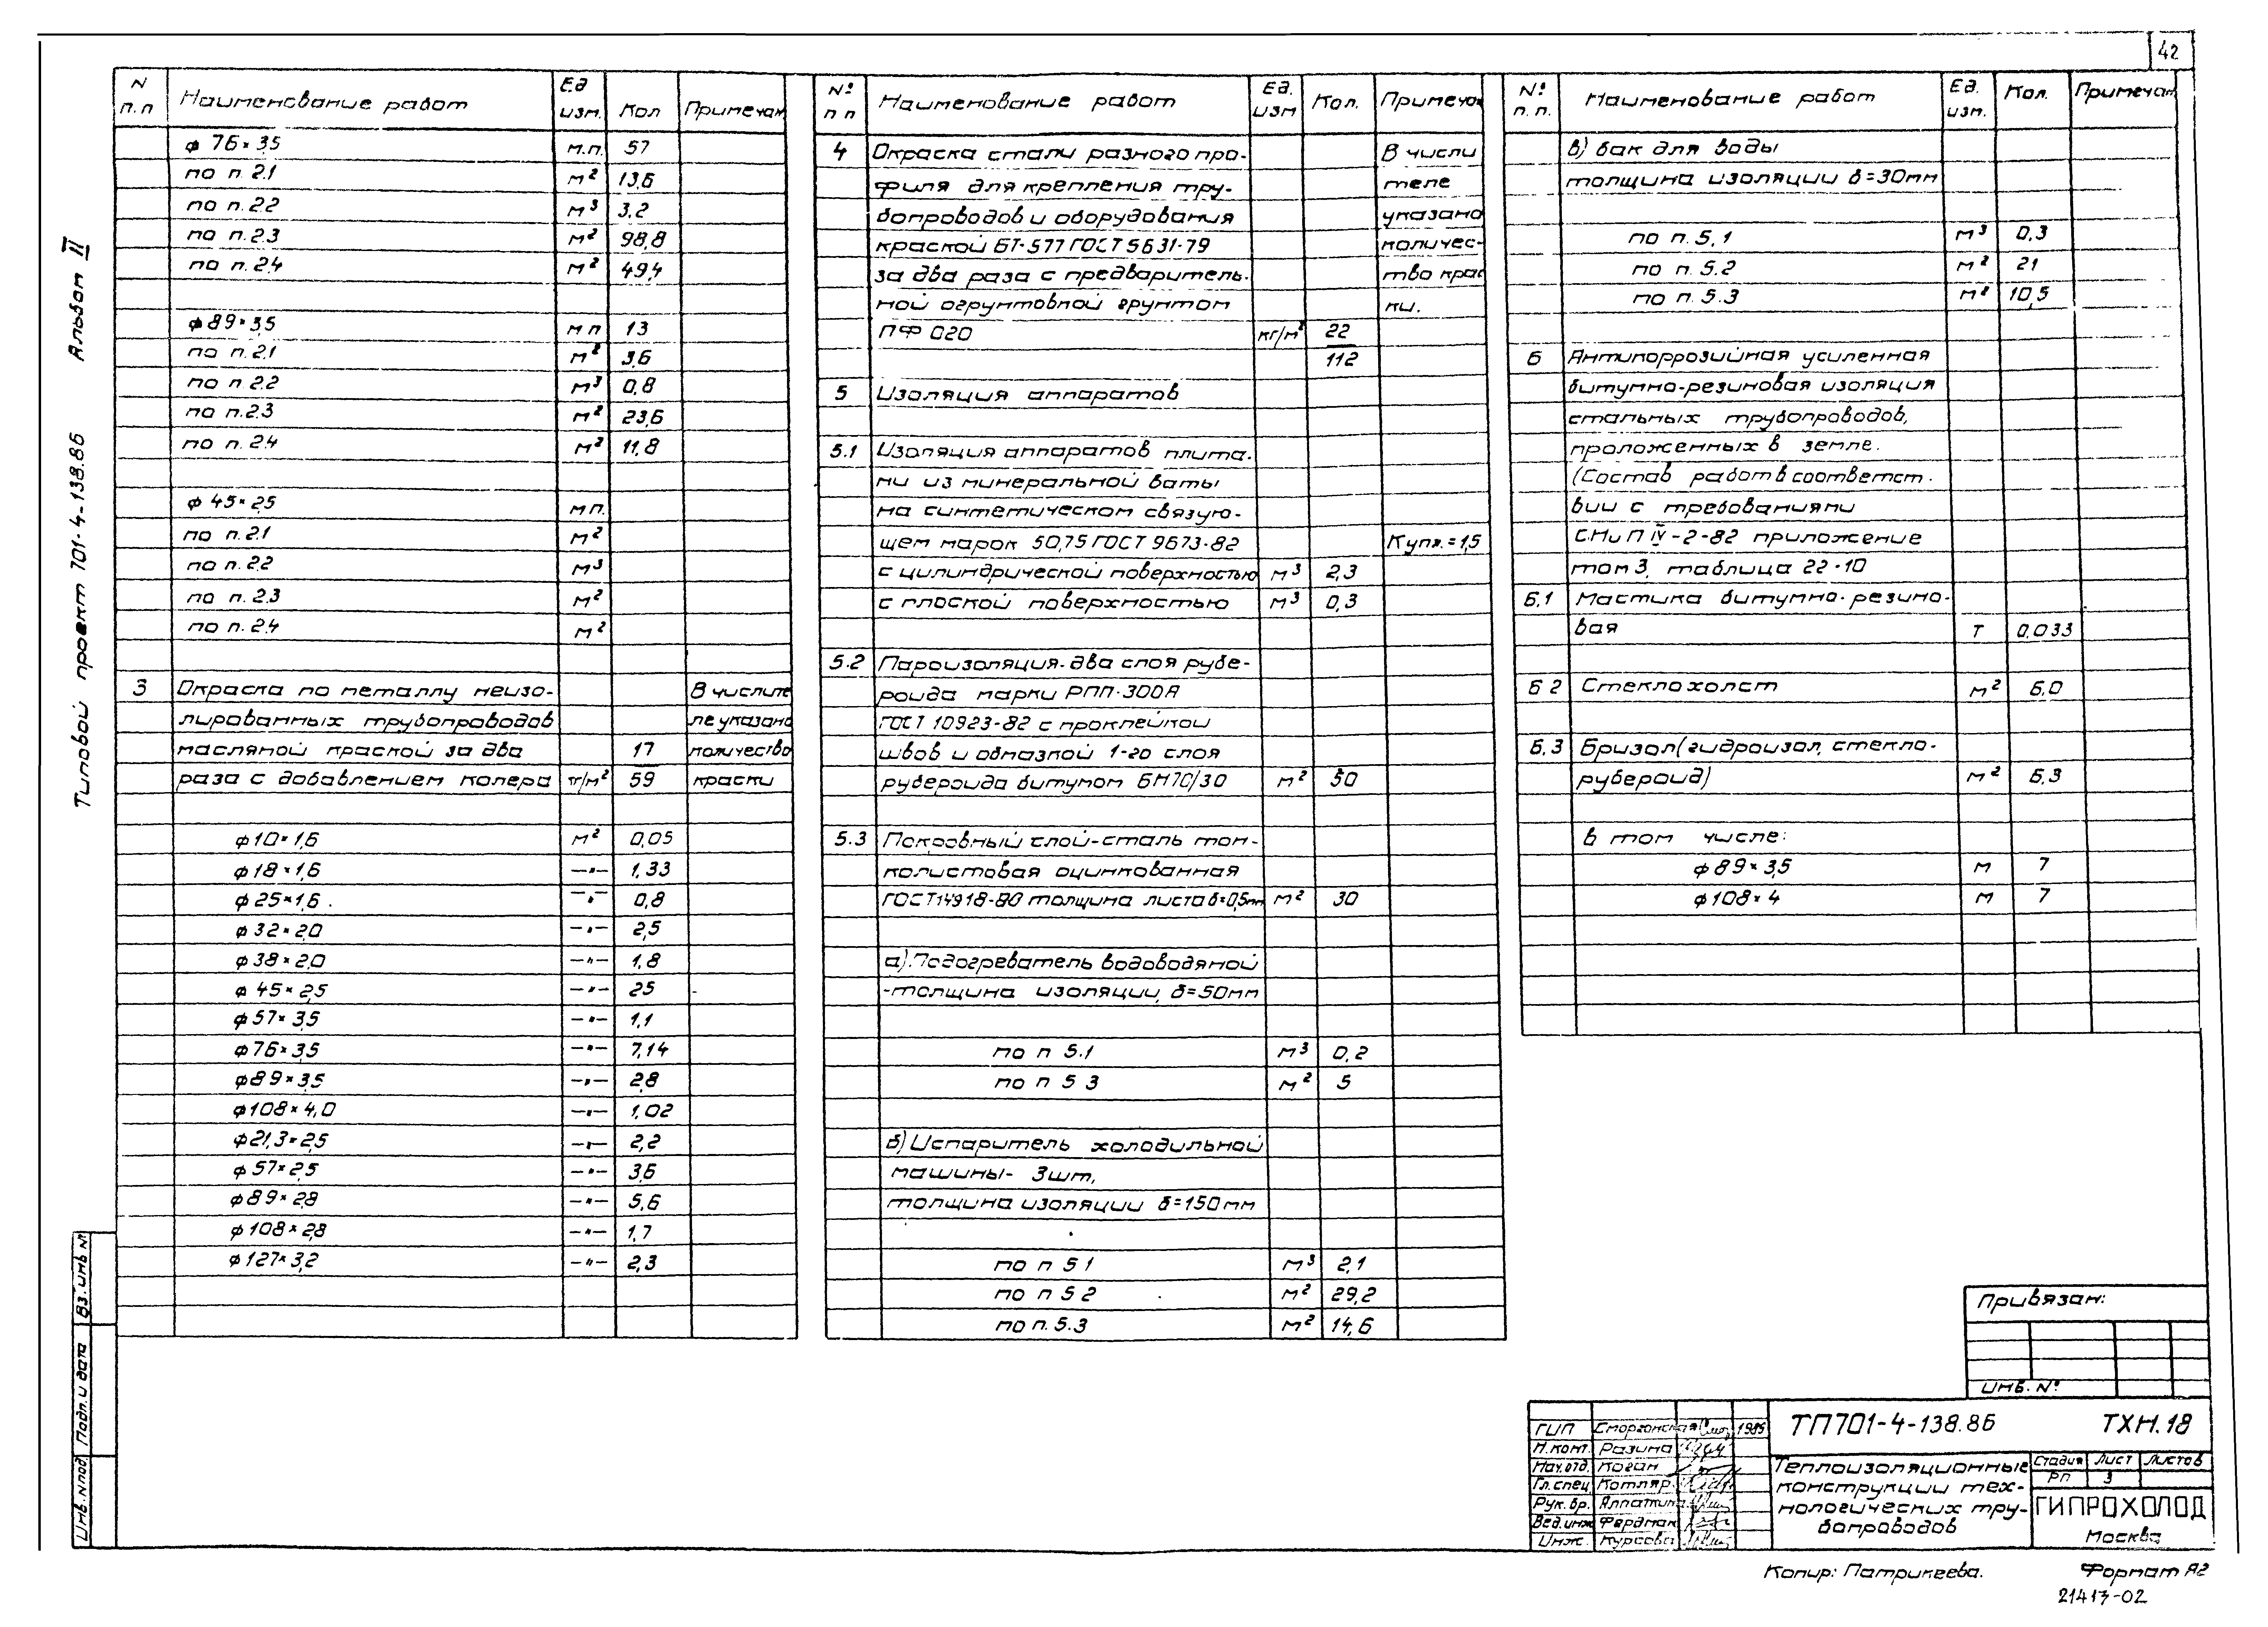 42
Типовой проект 701-4-138.86 Альбом II
N п.п Наименование работ Ед изм. Кол Примечан
ф 76×3,5 м.п. 57
по п. 2.1 м² 13,6
по п. 2.2 м³ 3,2
по п. 2.3 м² 98,8
по п. 2.4 м² 49,4
ф 89×3,5 м п 13
по п. 2.1 м² 3,6
по п. 2.2 м³ 0,8
по п. 2.3 м² 23,6
по п. 2.4 м² 11,8
ф 45×2,5 м п.
по п. 2.1 м²
по п. 2.2 м³
по п. 2.3 м²
по п. 2.4 м²
3 Окраска по металлу неизо- В числите
лированных трубопроводов ле указано
масляной краской за два 17 количество
раза с добавлением колера кг/м² 59 краски
ф10×1,6 м² 0,05
ф18×1,6 —"— 1,33
ф25×1,6 —"— 0,8
ф32×2,0 —"— 2,5
ф38×2,0 —"— 1,8
ф 45×2,5 —"— 25
ф57×3,5 —"— 1,1
ф76×3,5 —"— 7,14
ф89×3,5 —"— 2,8
ф108×4,0 —"— 1,02
ф21,3×2,5 —"— 2,2
ф57×2,5 —"— 3,6
ф89×2,8 —"— 5,6
ф108×2,8 —"— 1,7
ф127×3,2 —"— 2,3
№ п п Наименование работ Ед. изм Кол. Примечан
4 Окраска стали разного про- В числи
филя для крепления тру- теле
бопроводов и оборудования указано
краской БТ-577 ГОСТ 5631-79 количес-
за два раза с предваритель- тво крас
ной огрунтовкой грунтом ки.
ПФ 020 кг/м² 22
112
5 Изоляция аппаратов
5.1 Изоляция аппаратов плита-
ми из минеральной ваты
на синтетическом связую-
щем марок 50,75 ГОСТ 9573-82 Купл.=1,5
с цилиндрической поверхностью м³ 2,3
с плоской поверхностью м³ 0,3
5.2 Пароизоляция-два слоя рубе-
роида марки РПП-300А
ГОСТ 10923-82 с проклейкой
швов и обмазкой 1-го слоя
рубероида битумом БН70/30 м² 50
5.3 Покровный слой-сталь тон-
колистовая оцинкованная
ГОСТ14918-80 толщина листа δ=0,5мм м² 30
а). Подогреватель водоводяной
-толщина изоляции, δ=50мм
по п 5.1 м³ 0,2
по п 5 3 м² 5
б) Испаритель холодильной
машины- 3шт,
толщина изоляции δ=150мм
по п 5 1 м³ 2,1
по п 5 2 м² 29,2
по п. 5.3 м² 14,6
№ п. п. Наименование работ Ед. изм. Кол. Примечан
в) бак для воды
толщина изоляции δ=30мм
по п. 5,1 м³ 0,3
по п. 5.2 м² 21
по п. 5.3 м² 10,5
6 Антикоррозийная усиленная
битумно-резиновая изоляция
стальных трубопроводов,
проложенных в земле.
(Состав работ в соответст-
вии с требованиями
СНиП IV-2-82 приложение
том 3, таблица 22-10
6.1 Мастика битумно-резино-
вая т 0,033
6 2 Стеклохолст м² 6,0
6.3 Бризол (гидроизол, стекло-
рубероид) м² 6,3
в том числе:
ф89×3,5 м 7
ф108×4 м 7
Привязан:
Инв. №
ГИП Сморгонская 1985
Н.конт. Разина
Нач.отд. Коган
Гл.спец Котляр
Рук. бр. Лапаткина
Вед.инж Фердман
Инж. Курсова
ТП701-4-138.86 ТХН.18
Теплоизоляционные
конструкции тех-
нологических тру-
бопроводов
Стадия Лист Листов
РП 3
ГИПРОХОЛОД
Москва
Инв.№под. Подп. и дата Вз. инв №
Копир: Патрикеева. Формат А2
21413-02